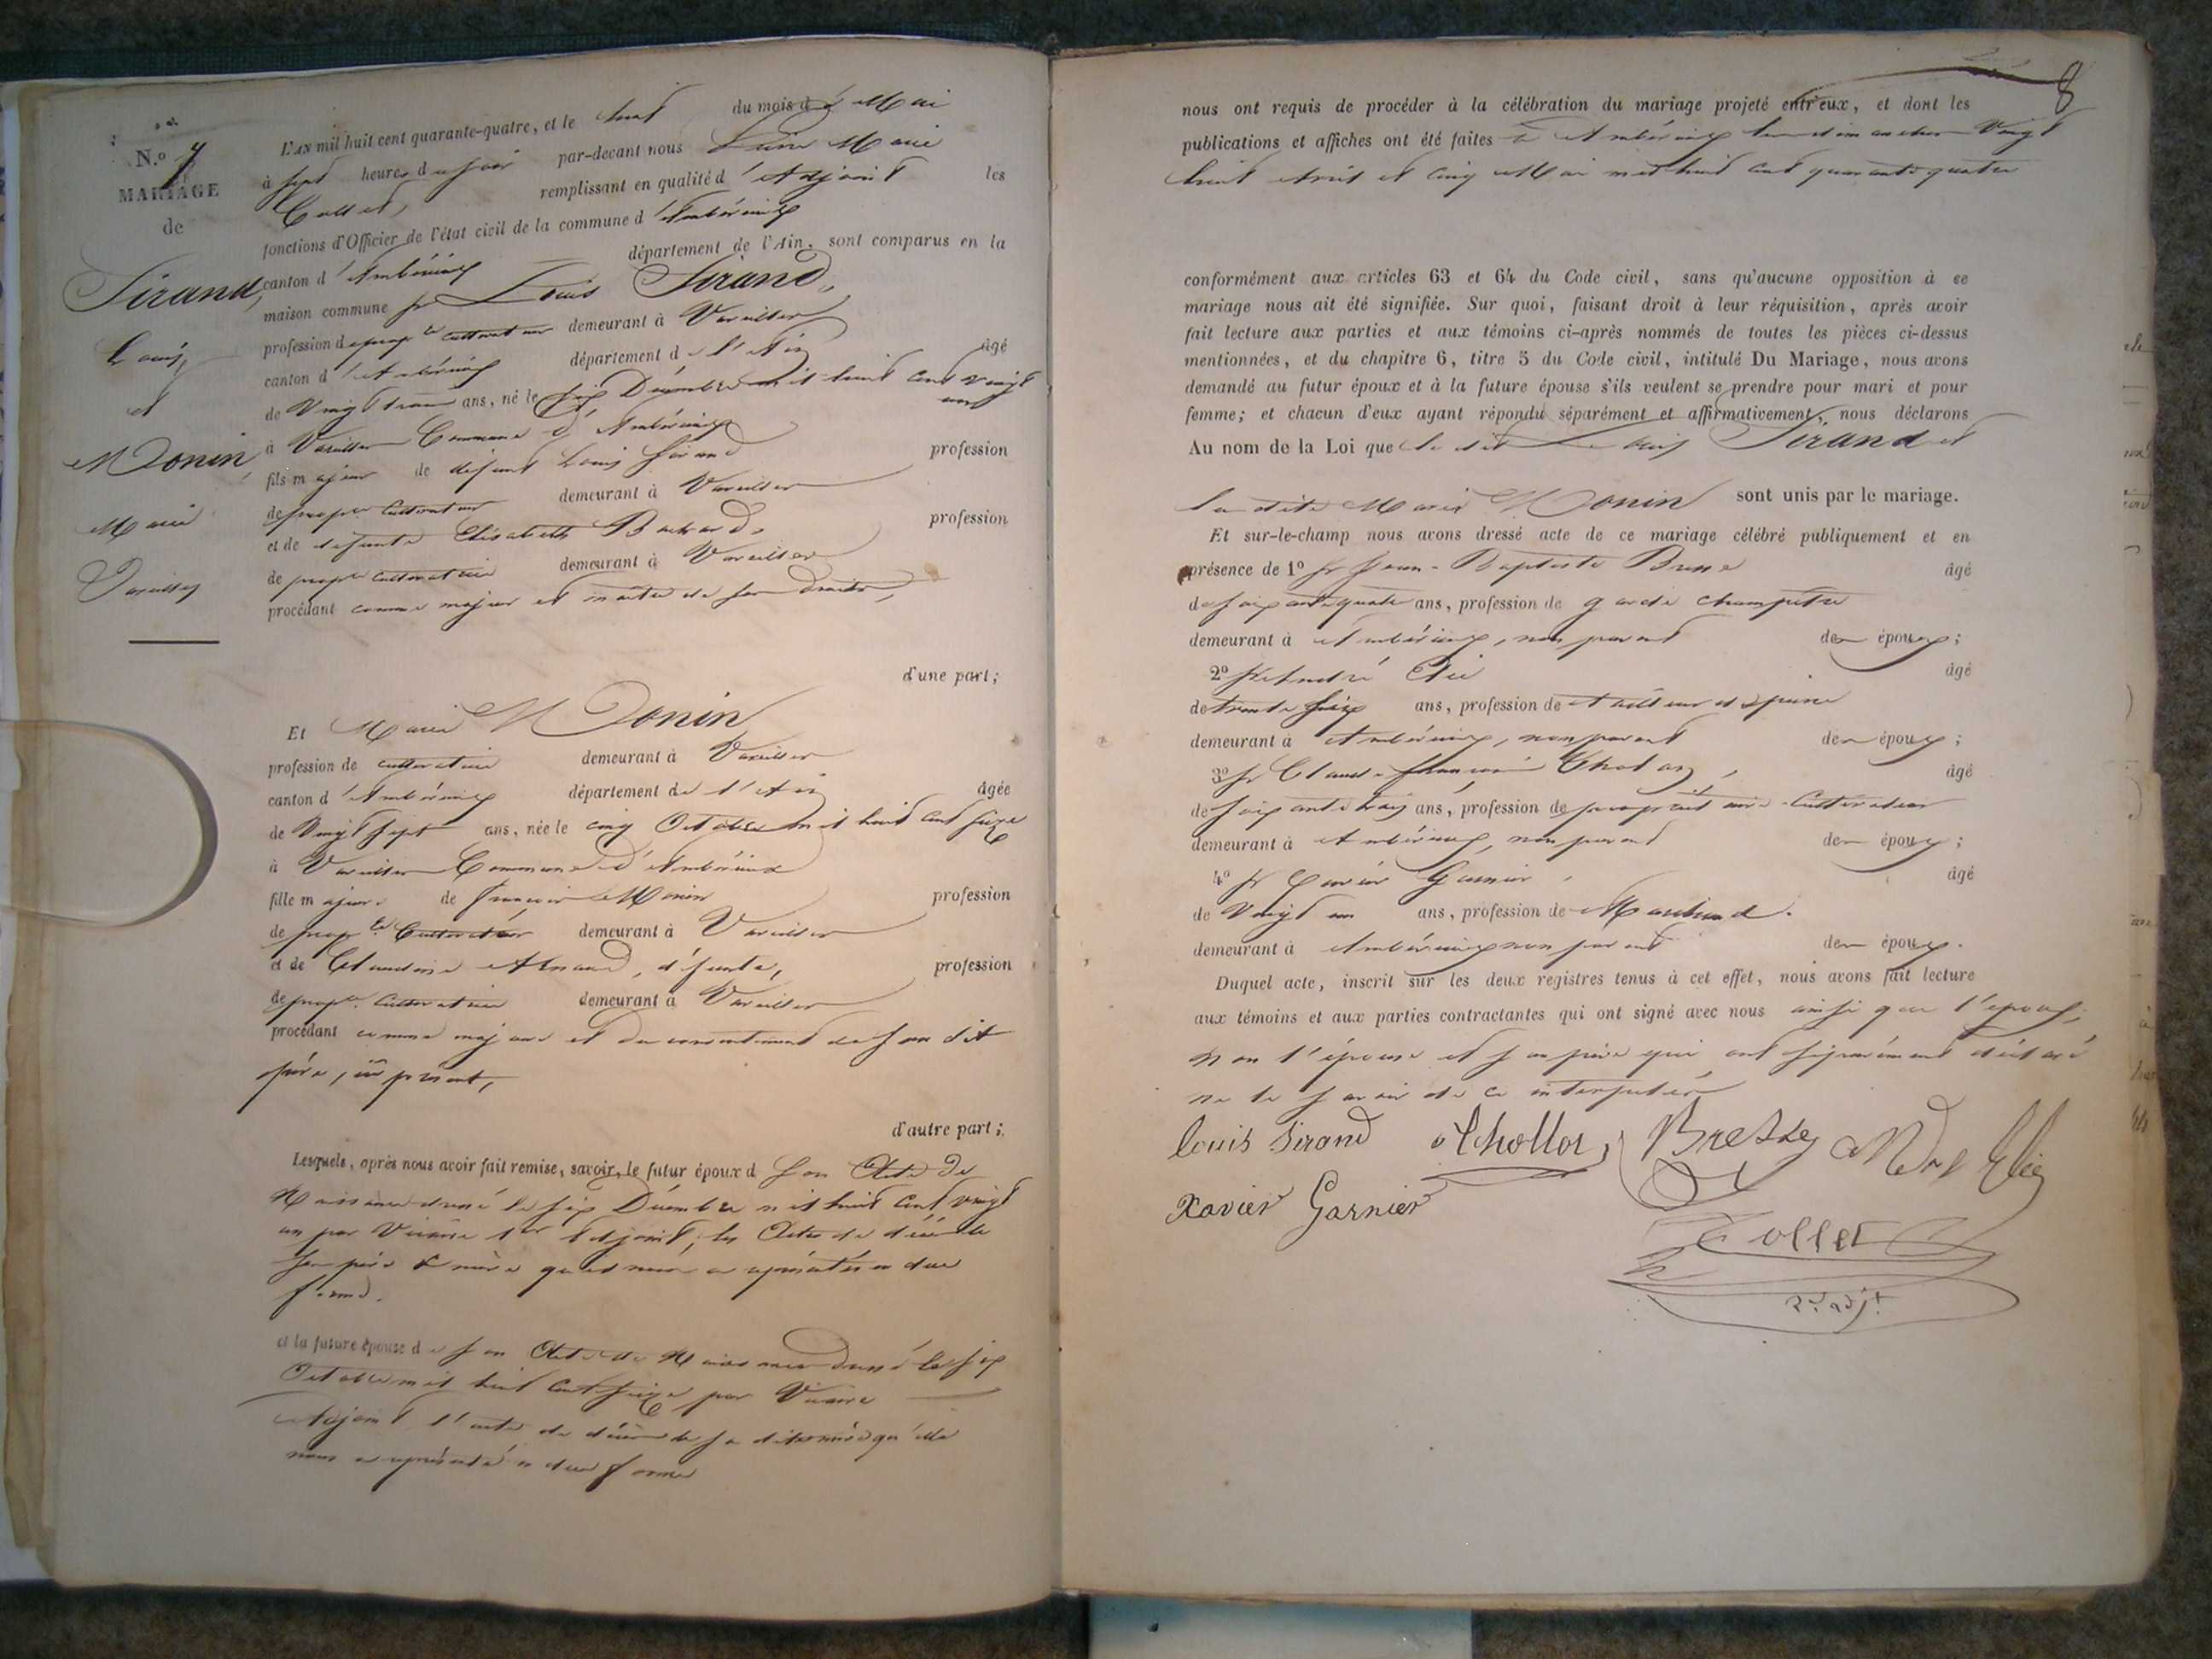 N.o 7
MARIAGE
de
Sirand,
Louis,
et
Monin,
Marie
Vareilles
L'AN mil huit cent quarante-quatre, et le huit du mois de Mai
à sept heures du soir par-devant nous Marie
Collet, remplissant en qualité d'Adjoint les
fonctions d'Officier de l'état civil de la commune d'Ambérieux
canton d'Ambérieux département de l'Ain, sont comparus en la
maison commune sr Louis Sirand,
profession de prop.re cultivateur demeurant à Vareilles
canton d'Ambérieux département de l'Ain âgé
de Vingt deux ans, né le six Décembre mil huit cent vingt
un
à Vareilles Commune d'Ambérieux
fils majeur de défunt Louis Sirand profession
de prop.re Cultivateur demeurant à Vareilles
et de défunte Elisabeth profession
de prop.re Cultivatrice demeurant à Vareilles
procédant comme majeur et maître de ses droits,
d'une part;
Et Marie Monin
profession de cultivatrice demeurant à Vareilles
canton d'Ambérieux département de l'Ain âgée
de Vingt sept ans, née le cinq Octobre mil huit cent seize
à Vareilles Commune d'Ambérieux
fille majeure de François Monin profession
de prop.re Cultivateur demeurant à Vareilles
et de Claudine, défunte, profession
de prop.re Cultivatrice demeurant à Vareilles
procédant comme majeure et du consentement de son dit
père, ici présent,
d'autre part;
Lesquels, après nous avoir fait remise, savoir, le futur époux de son Acte de
Naissance dressé le six Décembre mil huit cent vingt
un par 1er Adjoint, les Actes de décès de
ses père & mère qu'il nous a représentés en due
forme.
et la future épouse de son Acte de Naissance dressé le six
Octobre mil huit cent seize par
Adjoint l'acte de décès de sa dite mère qu'elle
nous a représenté en due forme
8
nous ont requis de procéder à la célébration du mariage projeté entr'eux, et dont les
publications et affiches ont été faites à Ambérieux les dimanches Vingt
huit Avril et cinq Mai mil huit cent quarante quatre
conformément aux articles 63 et 64 du Code civil, sans qu'aucune opposition à ce
mariage nous ait été signifiée. Sur quoi, faisant droit à leur réquisition, après avoir
fait lecture aux parties et aux témoins ci-après nommés de toutes les pièces ci-dessus
mentionnées, et du chapitre 6, titre 5 du Code civil, intitulé Du Mariage, nous avons
demandé au futur époux et à la future épouse s'ils veulent se prendre pour mari et pour
femme; et chacun d'eux ayant répondu séparément et affirmativement, nous déclarons
Au nom de la Loi que le dit Louis Sirand et
la dite Marie Monin sont unis par le mariage.
Et sur-le-champ nous avons dressé acte de ce mariage célébré publiquement et en
présence de 1o sr Jean-Baptiste âgé
de soixante quatre ans, profession de garde champêtre
demeurant à Ambérieux, non parent des époux;
2o sr André Elie âgé
de trente six ans, profession de tailleur de pierre
demeurant à Ambérieux, non parent des époux;
3o sr Claude François âgé
de soixante trois ans, profession de propriétaire-Cultivateur
demeurant à Ambérieux, non parent des époux;
4o sr Xavier Garnier, âgé
de Vingt un ans, profession de Marchand.
demeurant à Ambérieux non parent des époux.
Duquel acte, inscrit sur les deux registres tenus à cet effet, nous avons fait lecture
aux témoins et aux parties contractantes qui ont signé avec nous ainsi que l'époux,
non l'épouse et son père qui ont séparément déclaré
ne le savoir de ce interpellés
Louis Sirand
Xavier Garnier
Collet
2d. adjt.